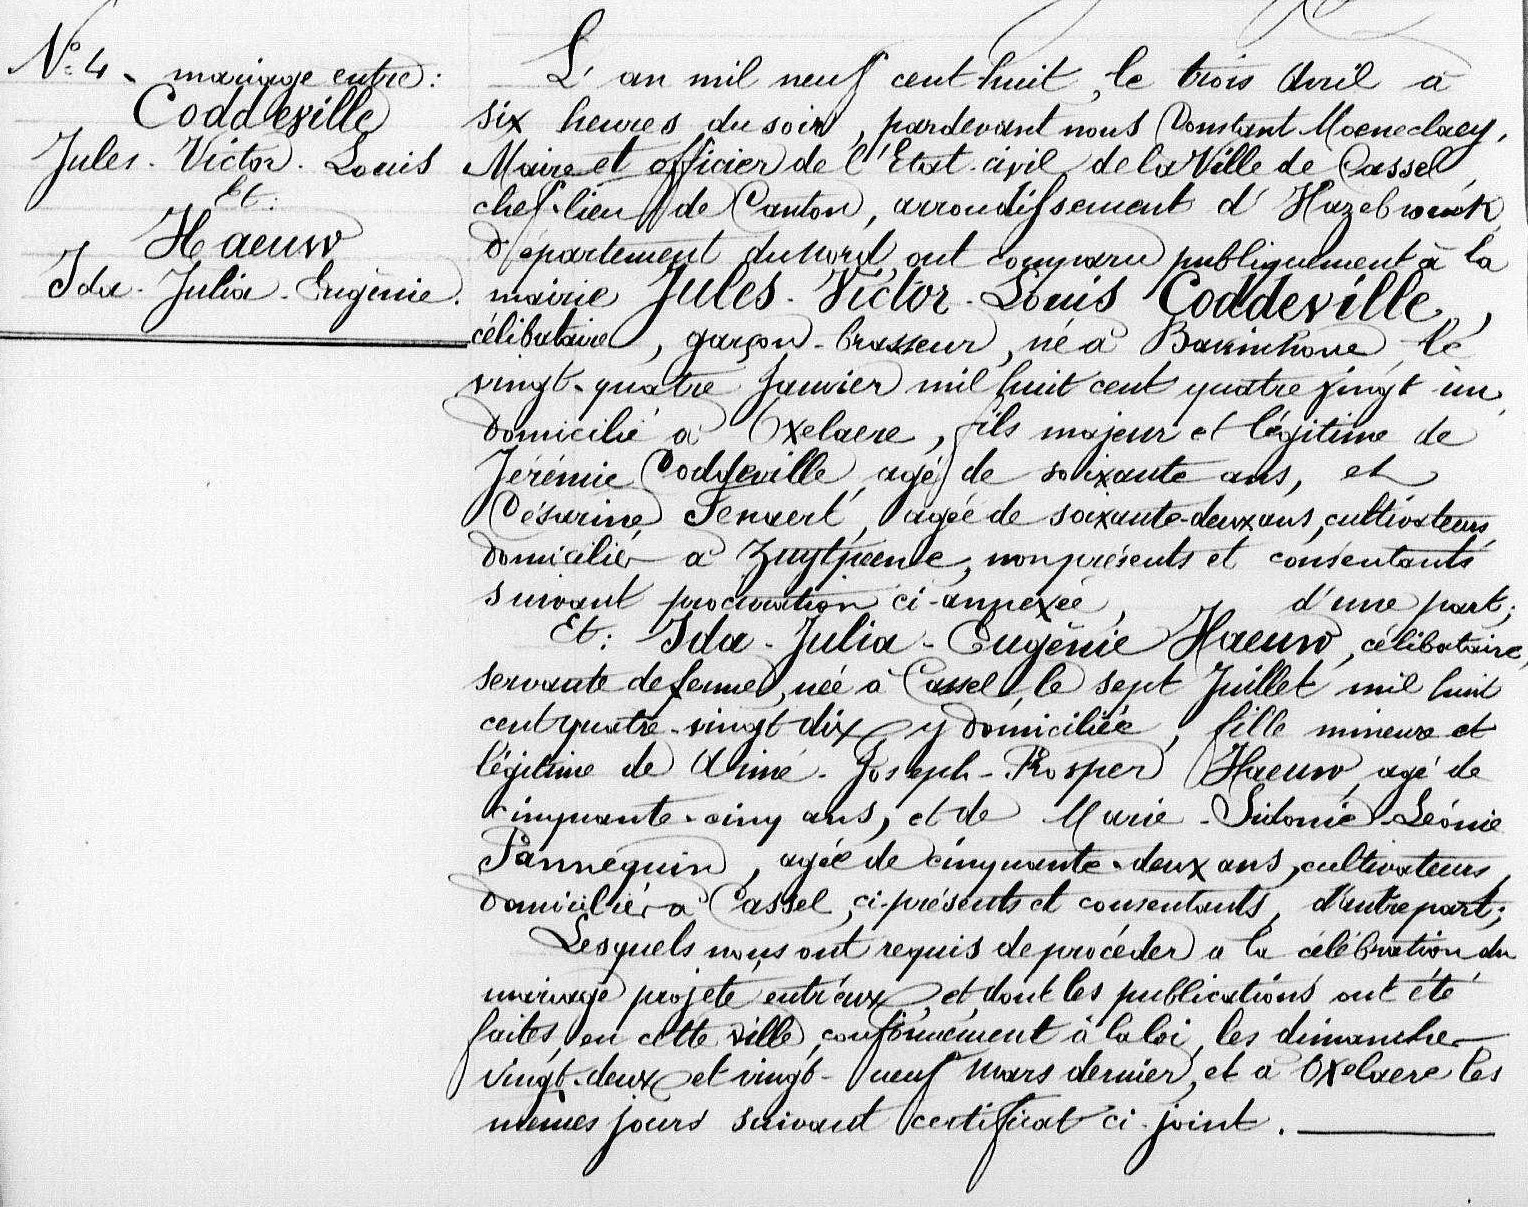 N° 4. mariage entre :
Coddeville
Jules - Victor - Louis
Et :
Haeuw
Ida - Julia - Eugénie.
L'an mil neuf cent huit, le trois Avril à
six heures du soir, pardevant nous Constant Moeneclaey,
Maire et officier de l'Etat-civil de la Ville de Cassel,
chef-lieu de Canton, arrondissement d'Hazebrouck,
département du Nord, ont comparu publiquement à la
mairie Jules - Victor - Louis Coddeville,
célibataire, garçon-brasseur, né à Bavinchove le
vingt-quatre Janvier mil huit cent quatre vingt un,
domicilié à Oxelaere, fils majeur et légitime de
Jérémie Coddeville, agé de soixante ans, et
Césarine Fenaert, agée de soixante-deux ans, cultivateurs,
domiciliés à Zuytpeene, non présents et consentants
suivant procuration ci-annexée, d'une part ;
Et : Ida - Julia - Eugénie Haeuw, célibataire,
servante de ferme, née à Cassel, le sept Juillet mil huit
cent quatre-vingt dix y domiciliée, fille mineure et
légitime de Aimé - Joseph - Prosper Haeuw, agé de
cinquante-cinq ans, et de Marie - Sidonie - Léonie
Pannequin, agée de cinquante-deux ans, cultivateurs,
domiciliés à Cassel, ci-présents et consentants, d'autre part ;
Lesquels nous ont requis de procéder a la célébration du
mariage projeté entr'eux, et dont les publications ont été
faites, en cette ville, conformément à la loi, les dimanches
vingt-deux et vingt-neuf Mars dernier, et à Oxelaere les
mêmes jours suivant certificat ci-joint.